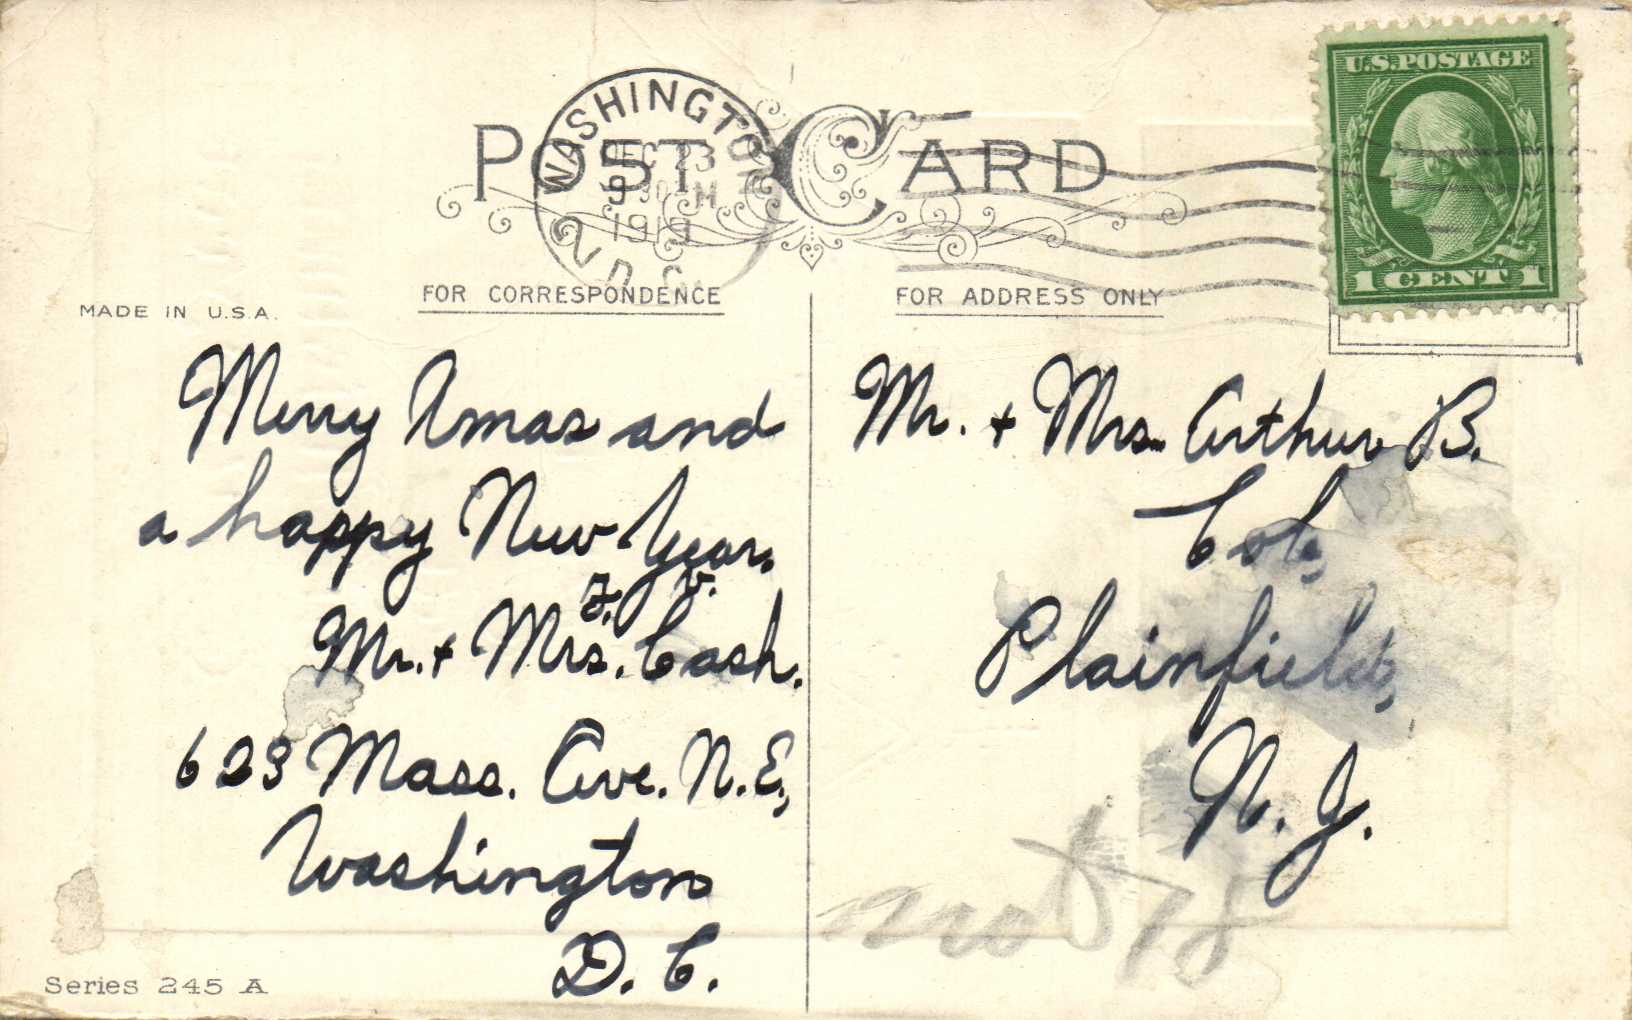 POST CARD
WASHINGTON
DEC 23
9 30 M
1919
D.C.
U.S. POSTAGE
1 CENT 1
MADE IN U.S.A.
FOR CORRESPONDENCE
FOR ADDRESS ONLY
Merry Xmas and
a happy New Year.
F. V.
Mr. + Mrs. Cash.
623 Mass. Ave. N.E.,
Washington
D. C.
Mr. + Mrs. Arthur B.
Cole,
Plainfield,
N. J.
Series 245 A